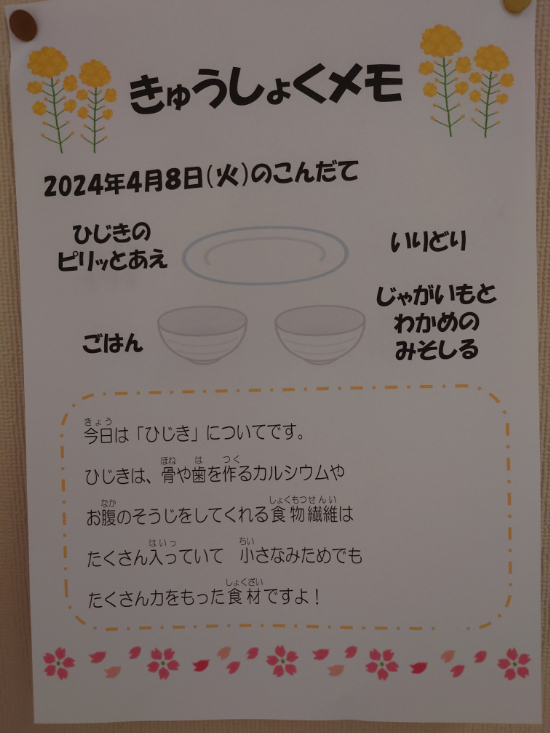 きゅうしょくメモ
2024年4月8日(火)のこんだて
ひじきの
ピリッとあえ
いりどり
ごはん
じゃがいもと
わかめの
みそしる
きょう
今日は「ひじき」についてです。
ほね は つく
ひじきは、骨や歯を作るカルシウムや
なか しょくもつせんい
お腹のそうじをしてくれる食物繊維は
はいっ ちい
たくさん入っていて 小さなみためでも
しょくざい
たくさん力をもった食材ですよ!